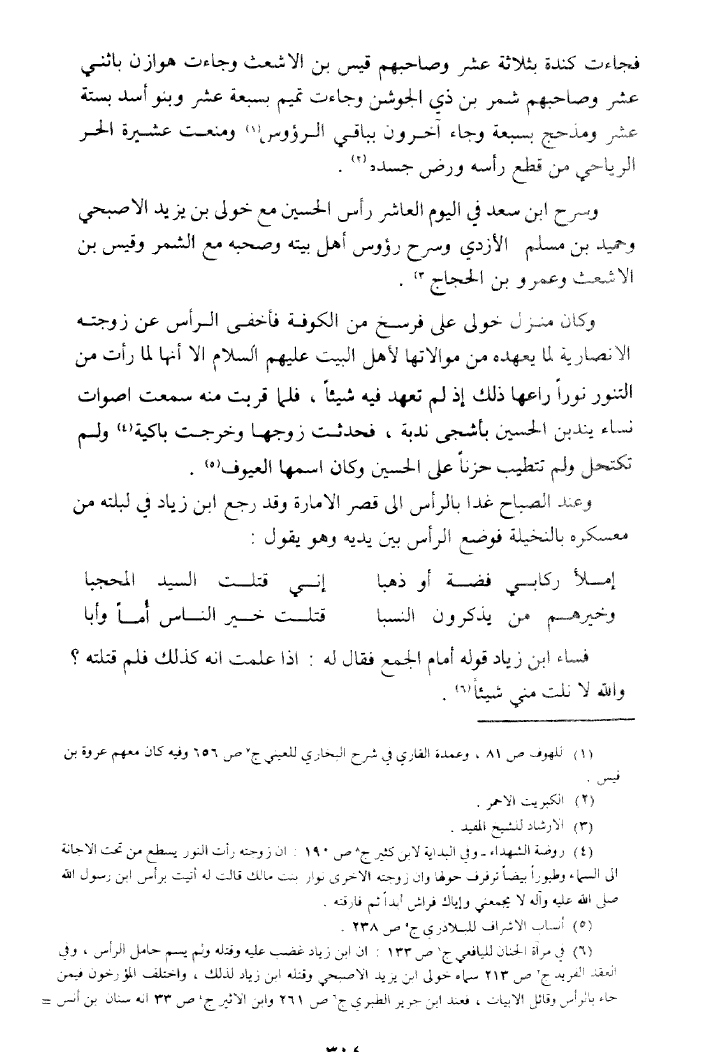 فجاءت كندة بثلاثة عشر وصاحبهم قيس بن الاشعث وجاءت هوازن باثني
عشر وصاحبهم شمر بن ذي الجوشن وجاءت تميم بسبعة عشر وبنو أسد بستة
عشر ومذحج بسبعة وجاء آخرون بباقي الرؤوس(١) ومنعت عشيرة الحر
الرياحي من قطع رأسه ورض جسده(٢) .
وسرح ابن سعد في اليوم العاشر رأس الحسين مع خولى بن يزيد الاصبحي
وحميد بن مسلم الأزدي وسرح رؤوس أهل بيته وصحبه مع الشمر وقيس بن
الاشعث وعمرو بن الحجاج ٣) .
وكان منزل خولى على فرسخ من الكوفة فأخفى الرأس عن زوجته
الانصارية لما يعهده من موالاتها لأهل البيت عليهم السلام الا أنها لما رأت من
التنور نوراً راعها ذلك إذ لم تعهد فيه شيئاً ، فلما قربت منه سمعت اصوات
نساء يندبن الحسين بأشجى ندبة ، فحدثت زوجها وخرجت باكية(٤) ولم
تكتحل ولم تتطيب حزناً على الحسين وكان اسمها العيوف(٥) .
وعند الصباح غدا بالرأس الى قصر الامارة وقد رجع ابن زياد في ليلته من
معسكره بالنخيلة فوضع الرأس بين يديه وهو يقول :
إملأ ركابي فضة أو ذهبا إني قتلت السيد المحجبا
وخيرهم من يذكرون النسبا قتلت خير الناس أماً وأبا
فساء ابن زياد قوله أمام الجمع فقال له : اذا علمت انه كذلك فلم قتلته ؟
والله لا نلت مني شيئاً(٦) .
(١) اللهوف ص ٨١ ، وعمدة القاري في شرح البخاري للعيني ج٧ ص ٦٥٦ وفيه كان معهم عروة بن
قيس .
(٢) الكبريت الاحمر .
(٣) الارشاد للشيخ المفيد .
(٤) روضة الشهداء ـ وفي البداية لابن كثير ج٨ ص ١٩٠ : ان زوجته رأت النور يسطع من تحت الاجانة
الى السماء وطيوراً بيضاً ترفرف حولها وان زوجته الاخرى نوار بنت مالك قالت له أتيت برأس ابن رسول الله
صلى الله عليه وآله لا يجمعني وإياك فراش أبداً ثم فارقته .
(٥) أنساب الاشراف للبلاذري ج٥ ص ٢٣٨ .
(٦) في مرآة الجنان لليافعي ج١ ص ١٣٣ : ان ابن زياد غضب عليه وقتله ولم يسم حامل الرأس ، وفي
العقد الفريد ج٢ ص ٢١٣ سماه خولى ابن يزيد الاصبحي وقتله ابن زياد لذلك ، واختلف المؤرخون فيمن
جاء بالرأس وقائل الابيات ، فعند ابن جرير الطبري ج٦ ص ٢٦١ وابن الاثير ج٤ ص ٣٣ انه سنان بن أنس =